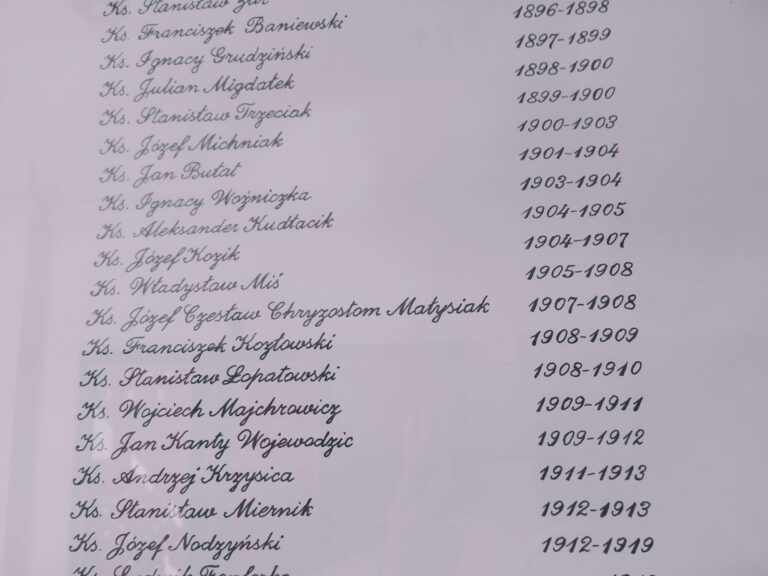 Ks. Stanisław
Ks. Franciszek Baniewski 1896-1898
Ks. Ignacy Grudziński 1897-1899
Ks. Julian Migdałek 1898-1900
Ks. Stanisław Trzeciak 1899-1900
Ks. Józef Michniak 1900-1903
Ks. Jan Bułat 1901-1904
Ks. Ignacy Woźniczka 1903-1904
Ks. Aleksander Kudłacik 1904-1905
Ks. Józef Kozik 1904-1907
Ks. Władysław Miś 1905-1908
Ks. Józef Czesław Chryzostom Małysiak 1907-1908
Ks. Franciszek Kozłowski 1908-1909
Ks. Stanisław Łopatowski 1908-1910
Ks. Wojciech Majchrowicz 1909-1911
Ks. Jan Kanty Wojewodzic 1909-1912
Ks. Andrzej Krzysica 1911-1913
Ks. Stanisław Miernik 1912-1913
Ks. Józef Nodzyński 1912-1919
Ks. Ludwik